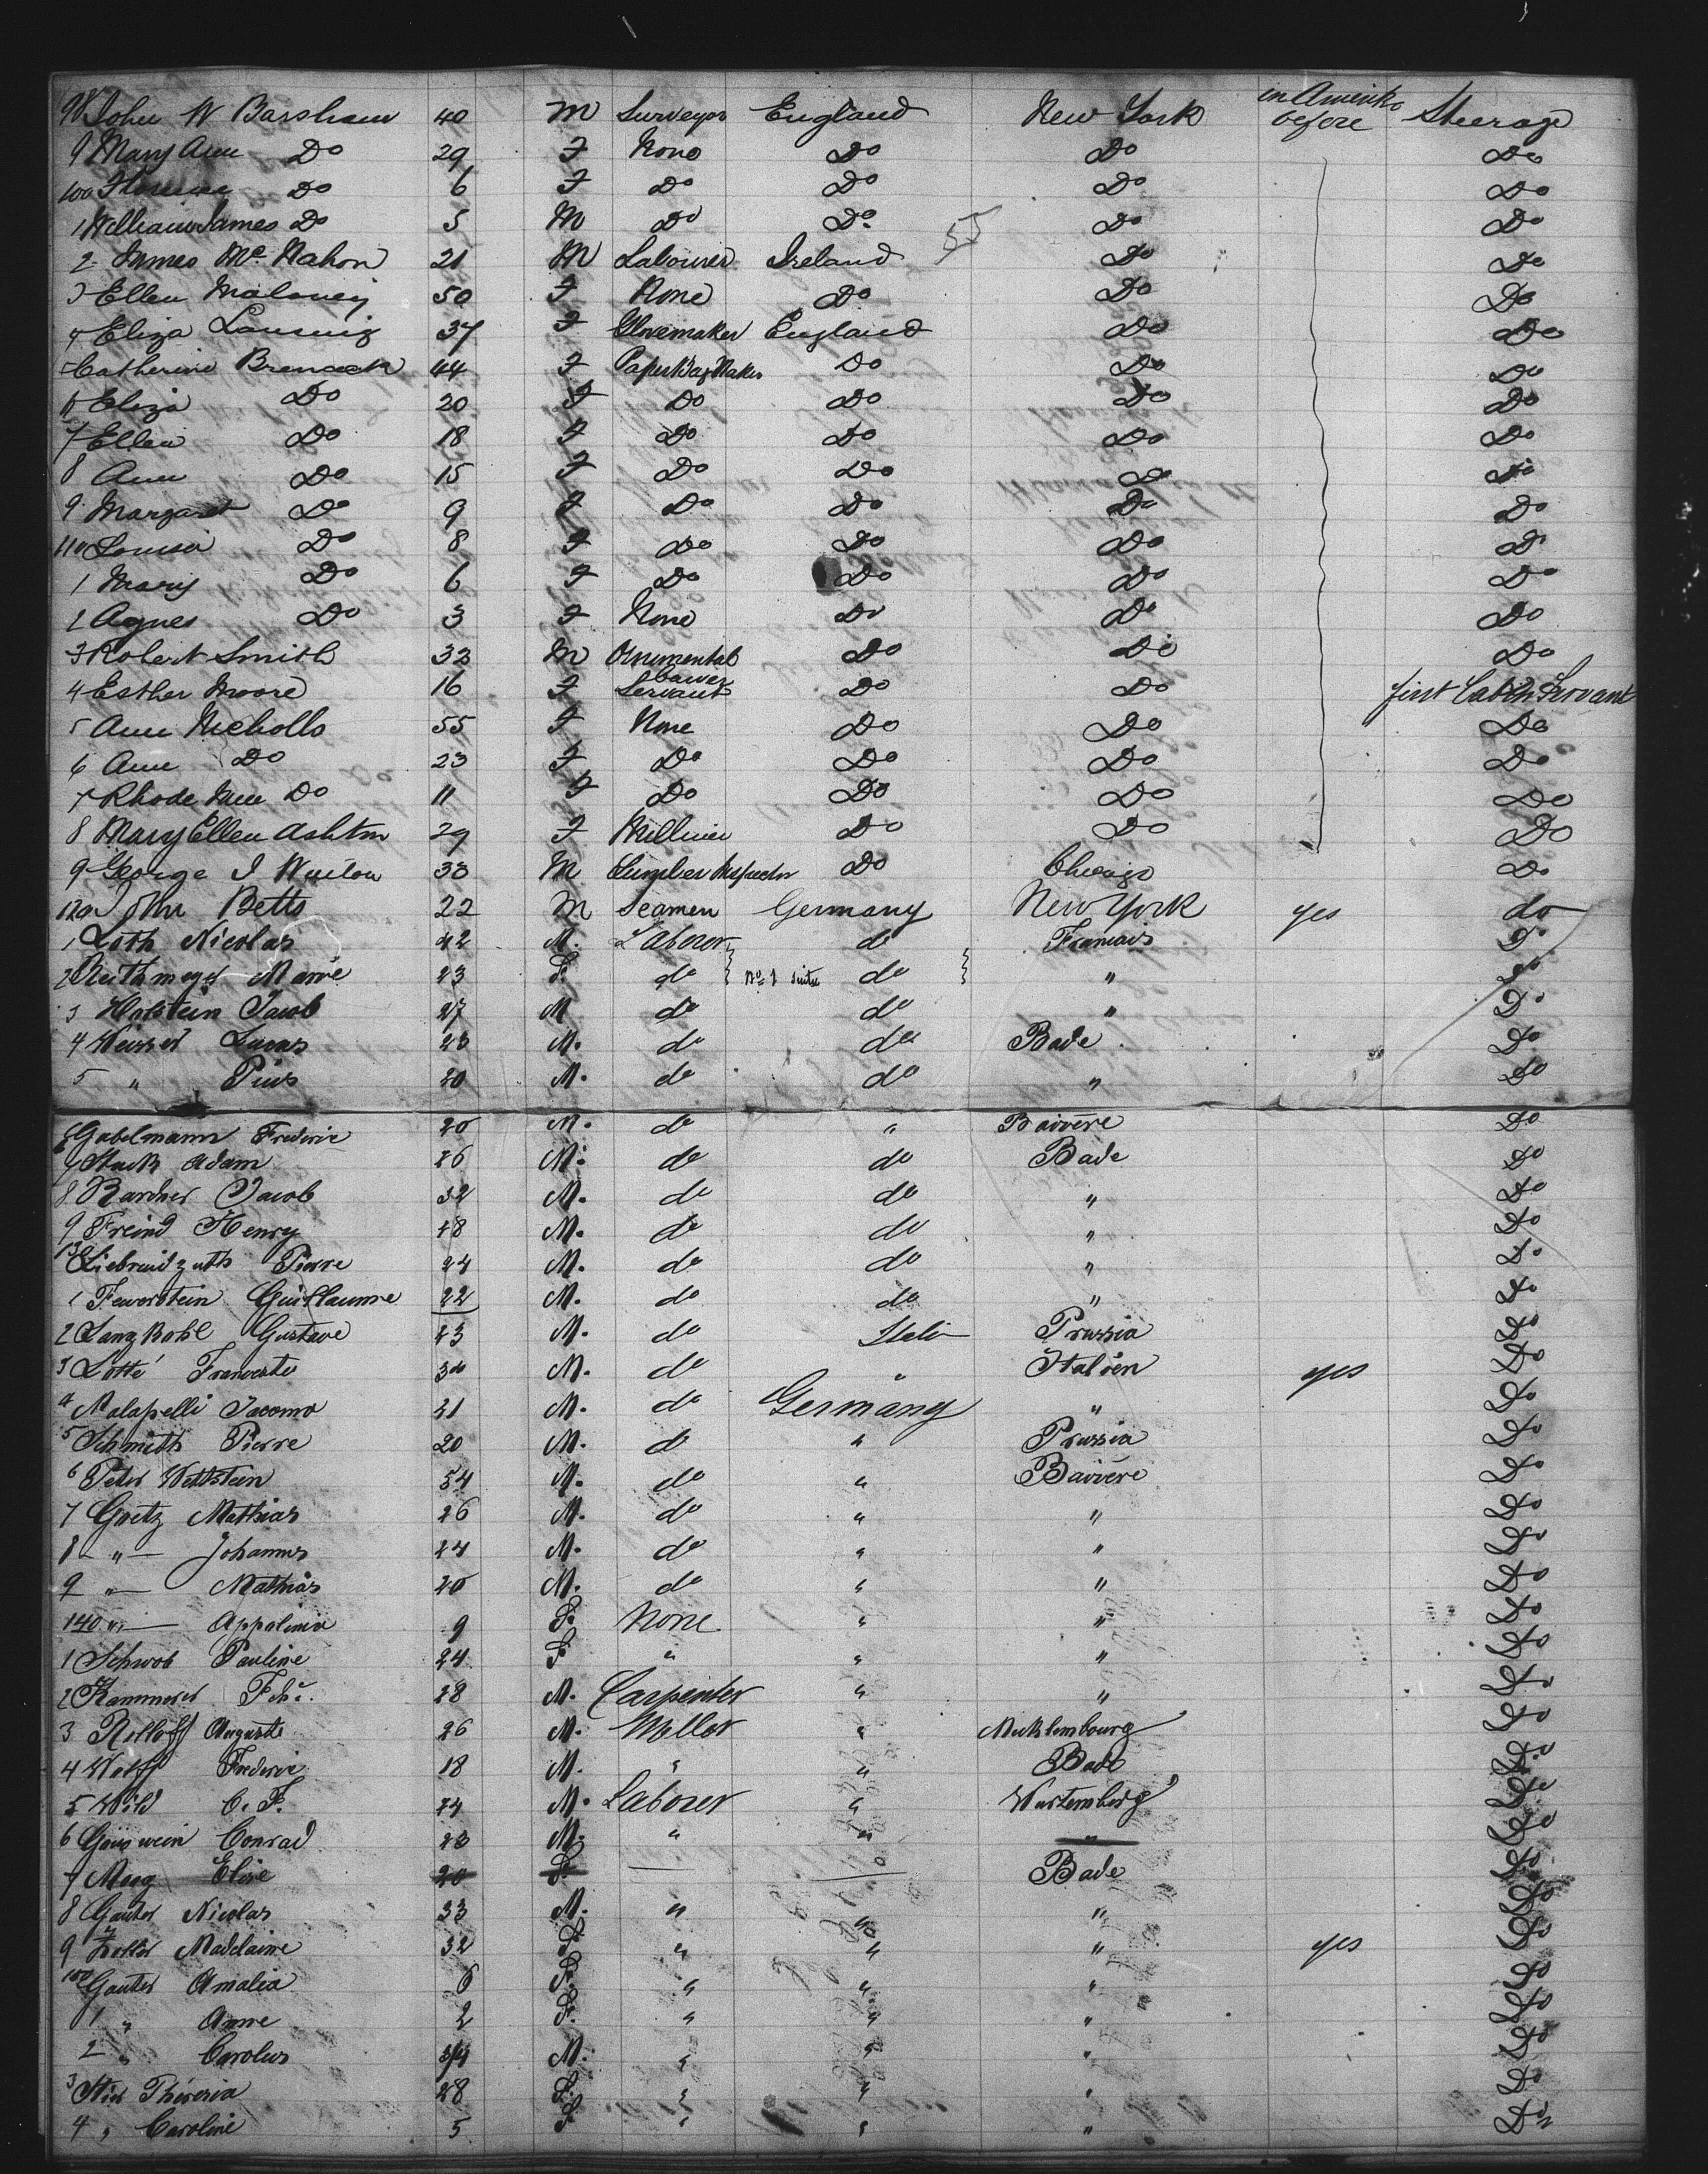 98 John W Barsham 40 M Surveyor England New York in Amerika before Steerage
9 Mary Ann Do 29 F None Do Do Do
100 Florence Do 6 F Do Do Do Do
1 William James Do 5 M Do Do Do Do
55
2 James Mc Mahon 21 M Labourer Ireland Do Do
3 Ellen Maloney 50 F None Do Do Do
4 Eliza 37 F Glovemaker England Do Do
5 Catherine 44 F Paper Bag Maker Do Do Do
6 Eliza Do 20 F Do Do Do Do
7 Ellen Do 18 F Do Do Do Do
8 Ann Do 15 F Do Do Do Do
9 Margaret Do 9 F Do Do Do Do
110 Louisa Do 8 F Do Do Do Do
1 Mary Do 6 F Do Do Do Do
2 Agnes Do 3 F None Do Do Do
3 Robert Smith 32 M Ornimental Carver Do Do Do
4 Esther Moore 16 F Servant Do Do first Cabin Servant
5 Ann Nicholls 55 F None Do Do Do
6 Ann Do 23 F Do Do Do Do
7 Rhode Ann Do 11 F Do Do Do Do
8 Mary Ellen Ashton 29 F Milliner Do Do Do
9 George I 33 M Lumber Inspector Do Chicago Do
120 John Betts 22 M Seamen Germany New York yes do
1 Loth Nicolas 42 M. Laborer do Francais Do
2 Reithmeyer Marie 23 F. do No 1 suite do " Do
3 Holstein Jacob 27 M do do " Do
4 Weisser Lucas 23 M. do do Bade Do
5 " Pius 20 M. do do " Do
6 Gabelmann Frederic 20 M. do " Bavière Do
7 Stuck Adam 26 M. do do Bade Do
8 Bardner Jacob 32 M. do do " Do
9 Freind Henry 28 M. do do " Do
130 Pierre 24 M. do do " Do
1 Feuerstein Guillaume 22 M. do do " Do
2 Langkohl Gustave 23 M. do Itali Prussia Do
3 Lotté M. do " Italien yes Do
4 Malapelli Jacomo 21 M. do Germany " Do
5 Schmith Pierre 20 M. do " Prussia Do
6 Peter Wettstein 54 M. do " Bavière Do
7 Goetz Mathias 26 M. do " " Do
8 — " — Johannes 24 M. do " " Do
9 " — Mathias 20 M. do " " Do
140 " — Appolinia 9 F. None " " Do
1 Schwob Pauline 24 F " " " Do
2 Kammerer Fch. 28 M. Carpenter " " Do
3 Rolloff Auguste 26 M. Miller " Mecklembourg Do
4 Wolff Frederic 18 M. " " Bade Do
5 Wild C. F. 24 M. Laborer " Wurtemberg Do
6 Conrad 23 M. " " " Do
7 Moog Elise 20 F. — — Bade Do
8 Gauter Nicolas 33 M. " " " Do
9 Madelaine 32 F " " " yes Do
150 Gauter Amalia 6 F. " " " Do
1 " Anne 2 F. " " " Do
2 " Carolus 3/4 M. " " " Do
3 Theresia 28 F. " " " Do
4 " Caroline 5 F " " " Do